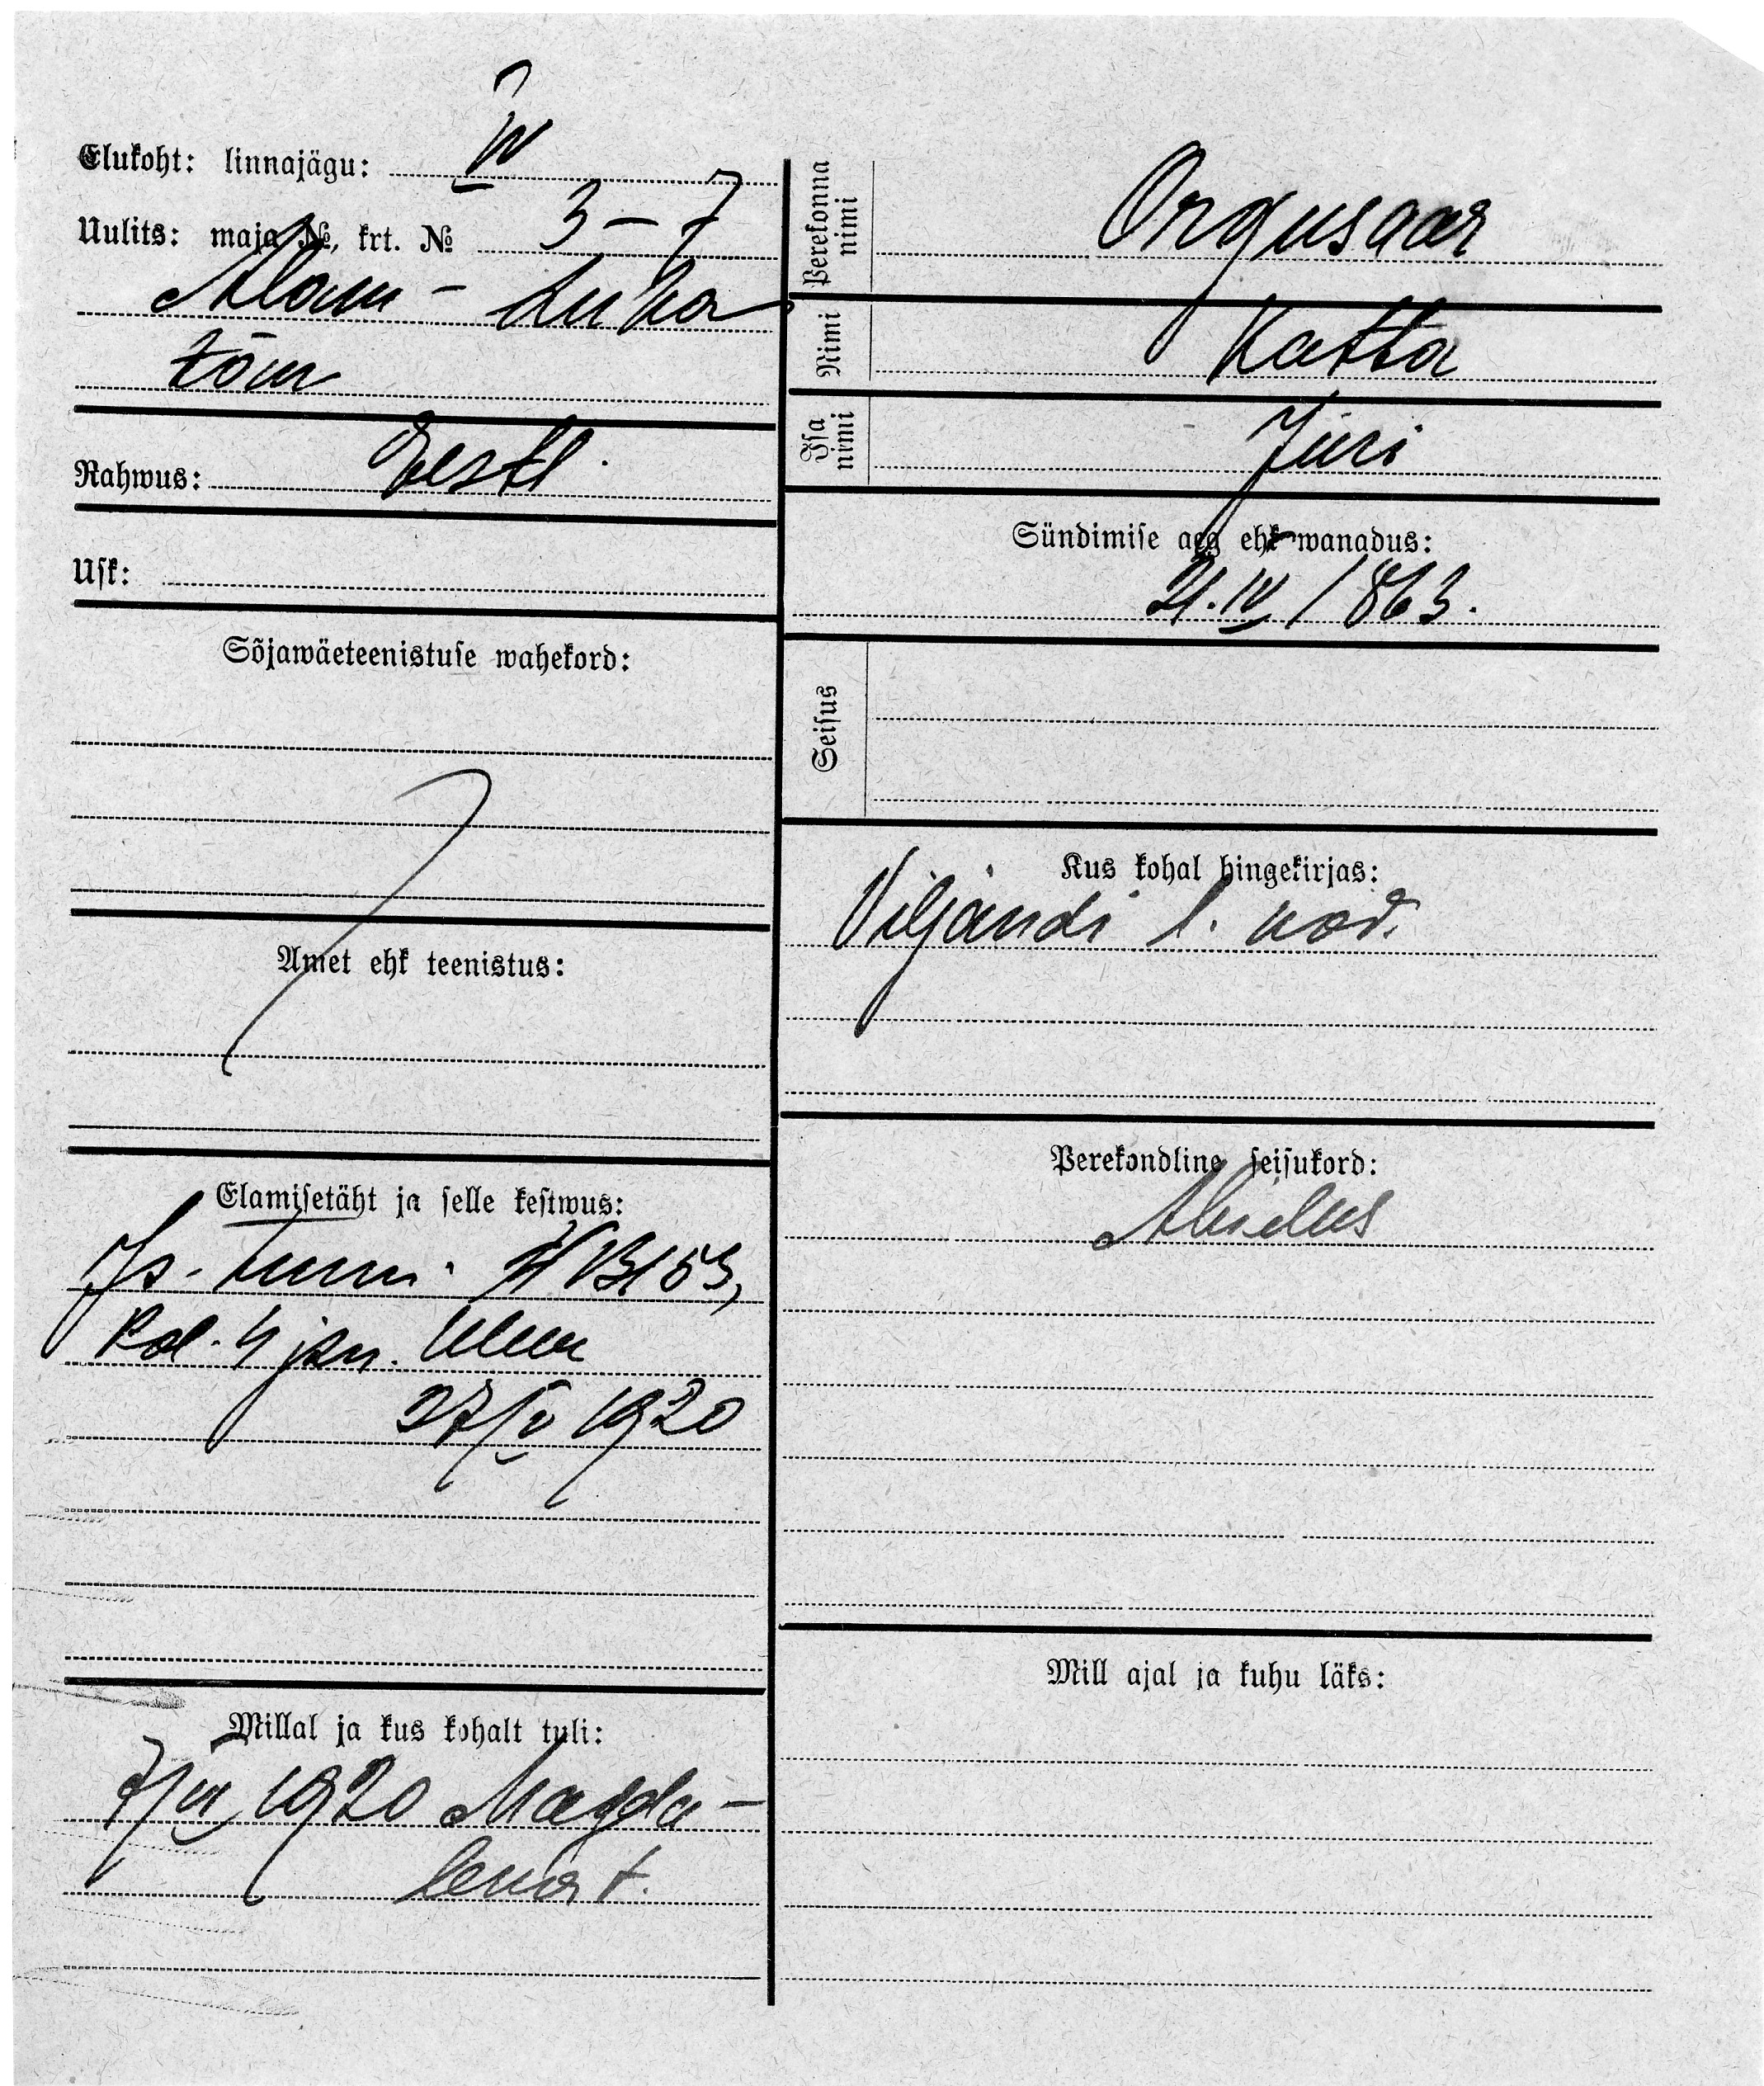 Elukoht: linnajägu: IV
Uulits: maja №, krt. № 3 – 7
Alam –
Rahwus: Eestl.
Usk:
Sõjawäeteenistuse wahekord:
Amet ehk teenistus:
Elamisetäht ja selle kestwus:
Is. tunn.
Pol. 4 jsk.
1920
Millal ja kus kohalt tuli:
1920 Magda –
lena t.
Perekonna nimi Orgusaar
Nimi Katta
Isa nimi Jüri
Sündimise aeg ehk wanadus:
21.IV 1863.
Seisus
Kus kohal hingekirjas:
Viljandi l. kod.
Perekondline seisukord:
Abielus
Mill ajal ja kuhu läks: